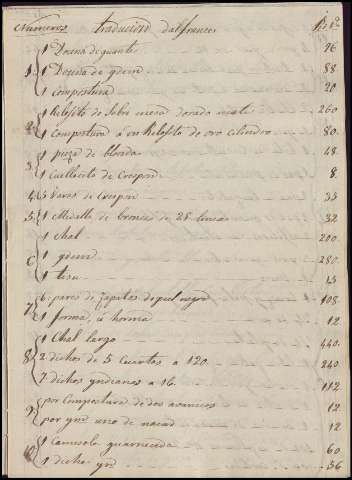 Numeros traducion del frances R.s v.n
1 { 1 Docena de guantes 96
1 Docena de ydem 88
1 compostura 20
2 { 1 Relojito de sobre mesa dorado mate 260
1 Compostura á un Relojito de oro cilindro 80.
3 { 1 pieza de blonda 48
1 Cuellecito de Crespon 8.
4 { 3 Varas de Crespon 33
5 { 1 Medalla de bronce de 28 lineas 32
6 { 1 chal 200.
1 ydem 280.
1 tisu 15
7 { 6 pares de zapatos de piel negro 108.
1 forma, ú horma 12
8 { 1 Chal largo 440.
2 dichos de 5 cuartos a 120. 240
7 dichos yndianos a 16. 112
9 { por Compostura de dos avanicos 12
por ynd uno de nacar 12
10 { 1 Camisola guarnecida 60
1 dicha yd 56